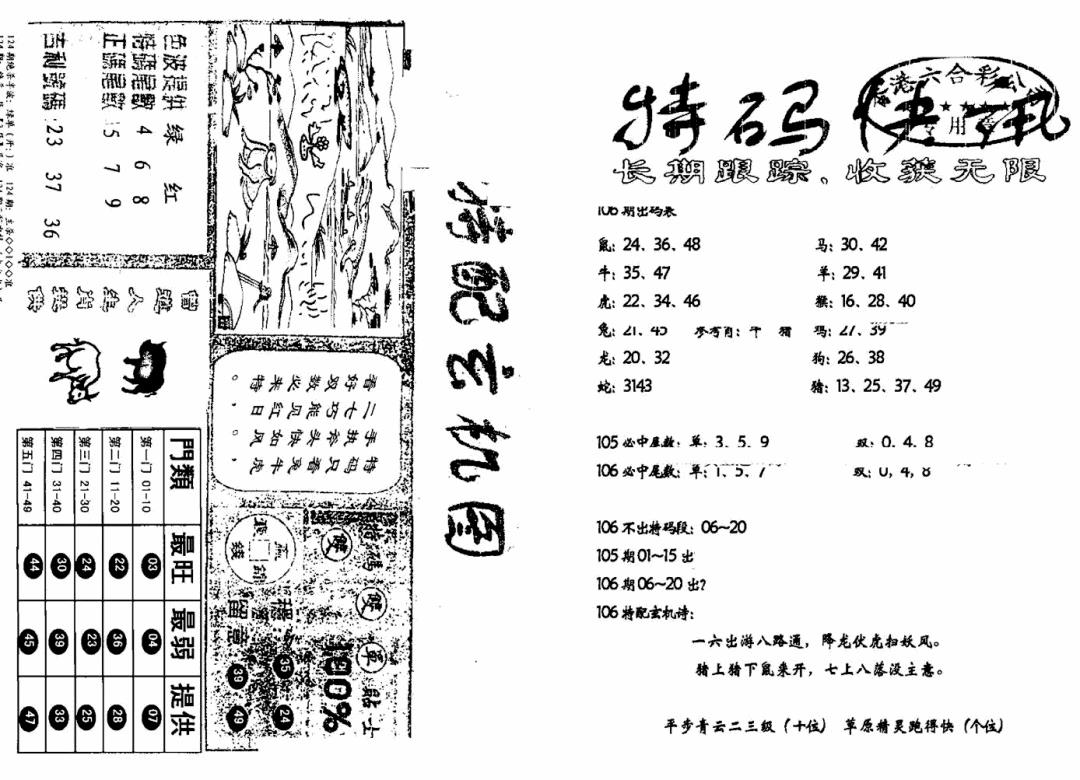 色波提供 绿 红
特碼尾數 4 6 8
正碼尾數 15 7 9
吉利號碼：23 37 36
特配玄机图
特码只看兔牛虎
手执斧头快如风。
二七巧能见红日，
看好双数必来特。
門類 最旺 最弱 提供
第一门 01-10 03 04 07
第二门 11-20 22 36 28
第三门 21-30 24 23 25
第四门 31-40 30 39 33
第五门 41-49 44 45 47
雙
雙
單
100%
穩
留意
35 24
38 49
特码快讯
港六合彩公
专用章
长期跟踪、收获无限
106期出码表
鼠: 24、36、48 马: 30、42
牛: 35、47 羊: 29、41
虎: 22、34、46 猴: 16、28、40
兔: 21、45 参考肖: 牛 猪 鸡: 27、39
龙: 20、32 狗: 26、38
蛇: 3143 猪: 13、25、37、49
105必中尾数: 单: 3. 5. 9 双: 0. 4. 8
106必中尾数: 单: 1. 5. 7 双: 0, 4, 8
106不出特码段: 06~20
105期01~15出
106期06~20出?
106特配玄机诗:
一六出游八路通, 降龙伏虎扫妖风。
猪上猪下鼠来开, 七上八落没主意。
平步青云二三级(十位) 草原精灵跑得快(个位)